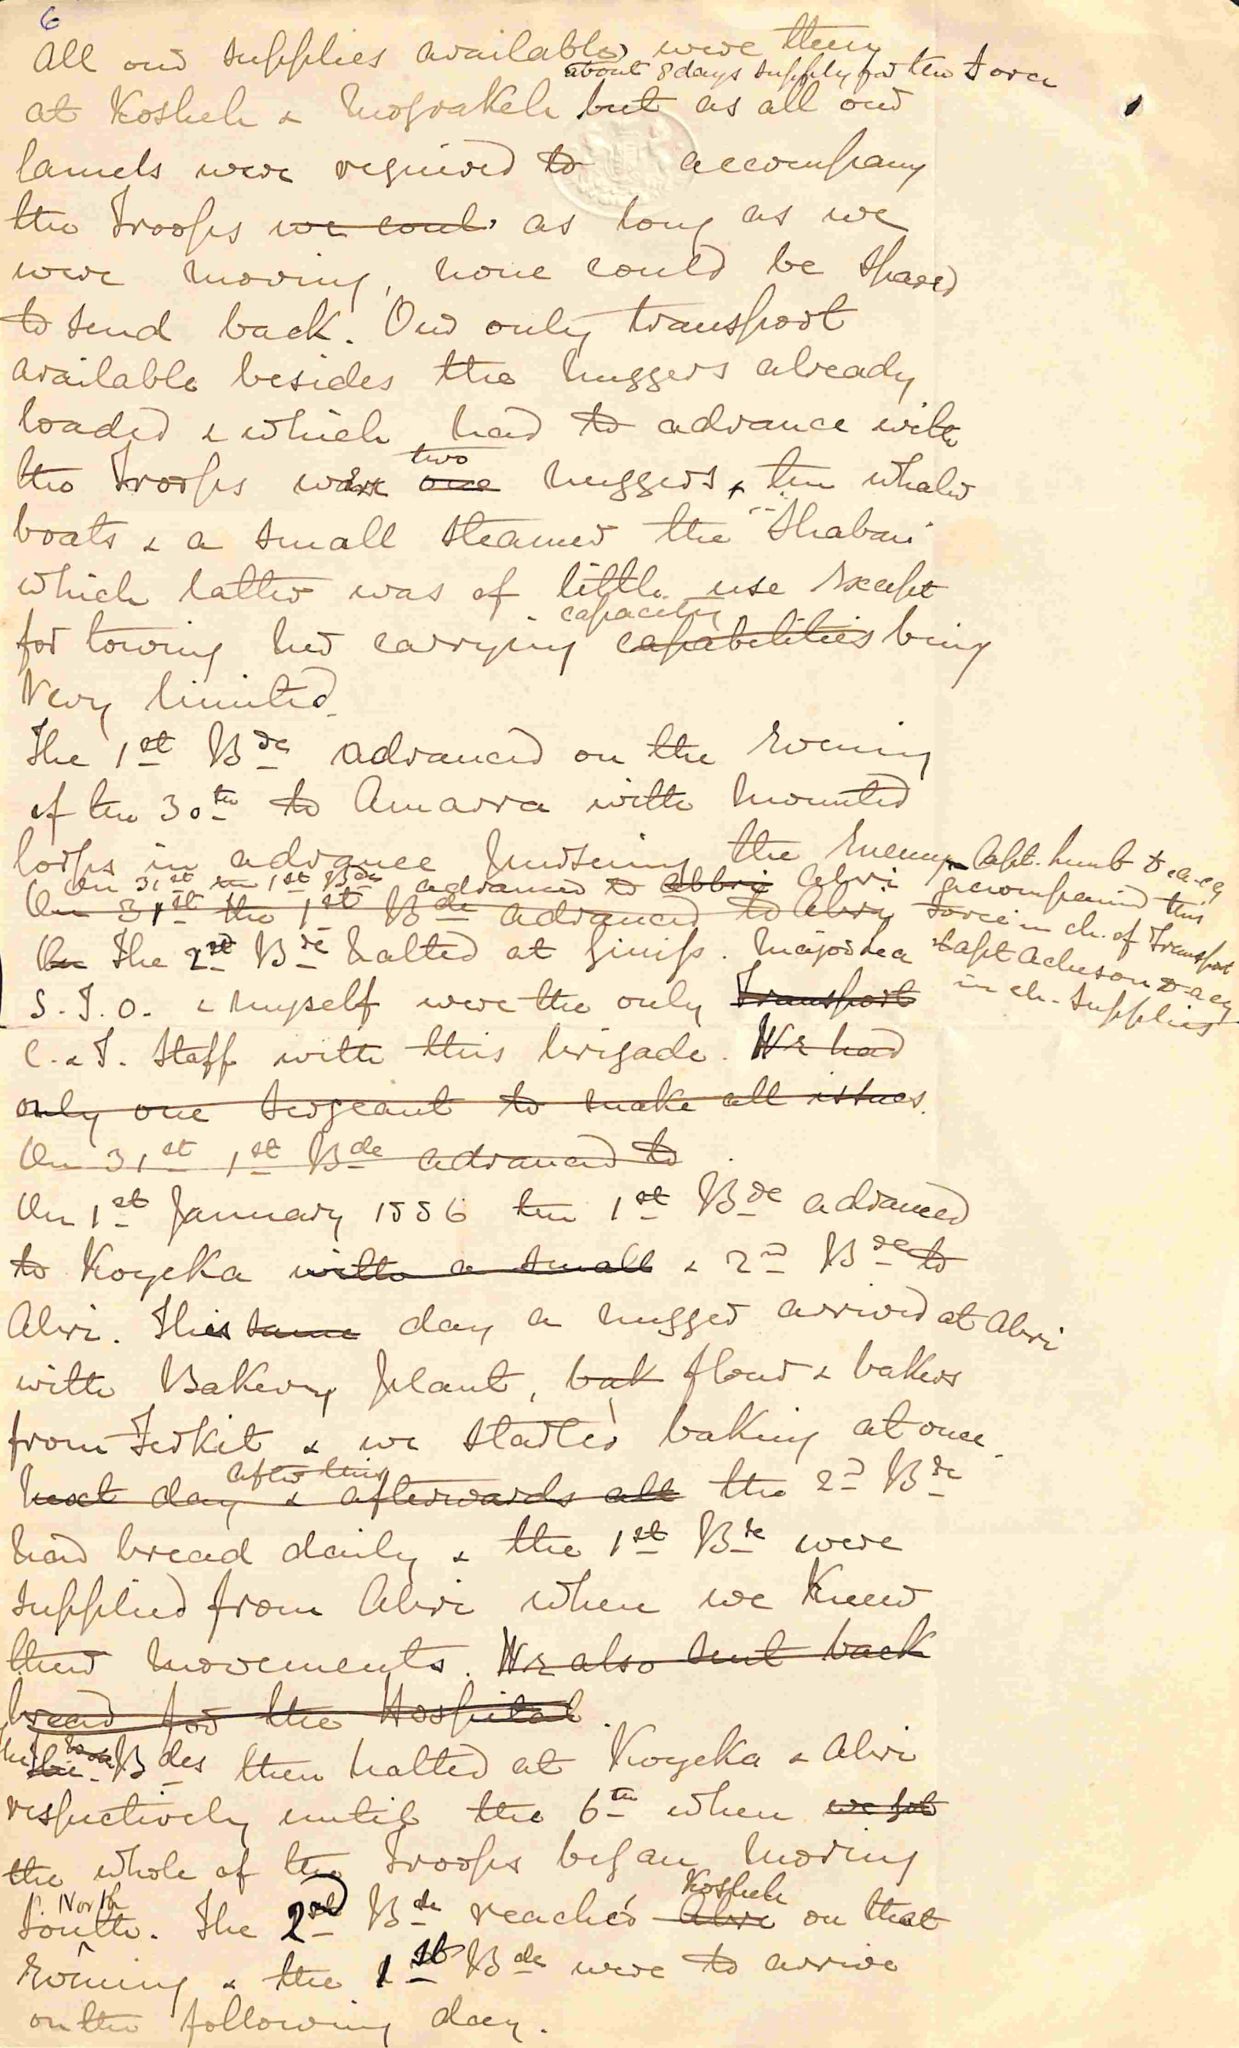 6
All our supplies available were then
about 8 days supply for the Force
at Kosheh & Mograkeh but as all our
Camels were required to accompany
the Troops we coul as long as we
were moving, none could be spared
to send back. Our only transport
available besides the nuggers already
loaded & which had to advance with
two
the Troops were one nuggers, & ten whaler
boats & a small steamer the Shaban
which latter was of little use except
capacity
for towing her carrying capabilities being
very limited.
The 1st Bde advanced on the Evening
of the 30th to Amarra with Mounted
Corps in advance pursuing the Enemy
Capt. D.A.C.G
accompanied this
Force in ch. of Transport
& Capt Acheson D.A.C.G
in ch. Supplies
On 31st the 1st Bde advanced to Abbri Abri
On 31st the 1st Bde advanced to Abri
On The 2nd Bde halted at Giniss. Major Rea
S.T.O. & myself were the only Transport
C. & T. Staff with this brigade. We had
only one Sergeant to make all issues.
On 31st 1st Bde advanced to
On 1st January 1886 the 1st Bde advanced
to Koyeka with a small & 2nd Bde to
Abri. This same day a nugger arrived at Abri
with Bakery plant, bak flour & bakers
from Ferkit & we started baking at once.
after this
Next day & afterwards all the 2nd Bde
had bread daily & the 1st Bde were
supplied from Abri when we knew
their movements. We also sent back
bread for the Hospital.
The Bdes then halted at Koyeka & Abri
respectively until the 6th when we got
the whole of the Troops began moving
North
South. The 2nd Bde reached Abri on that
Kosheh
Evening & the 1st Bde were to arrive
on the following day.